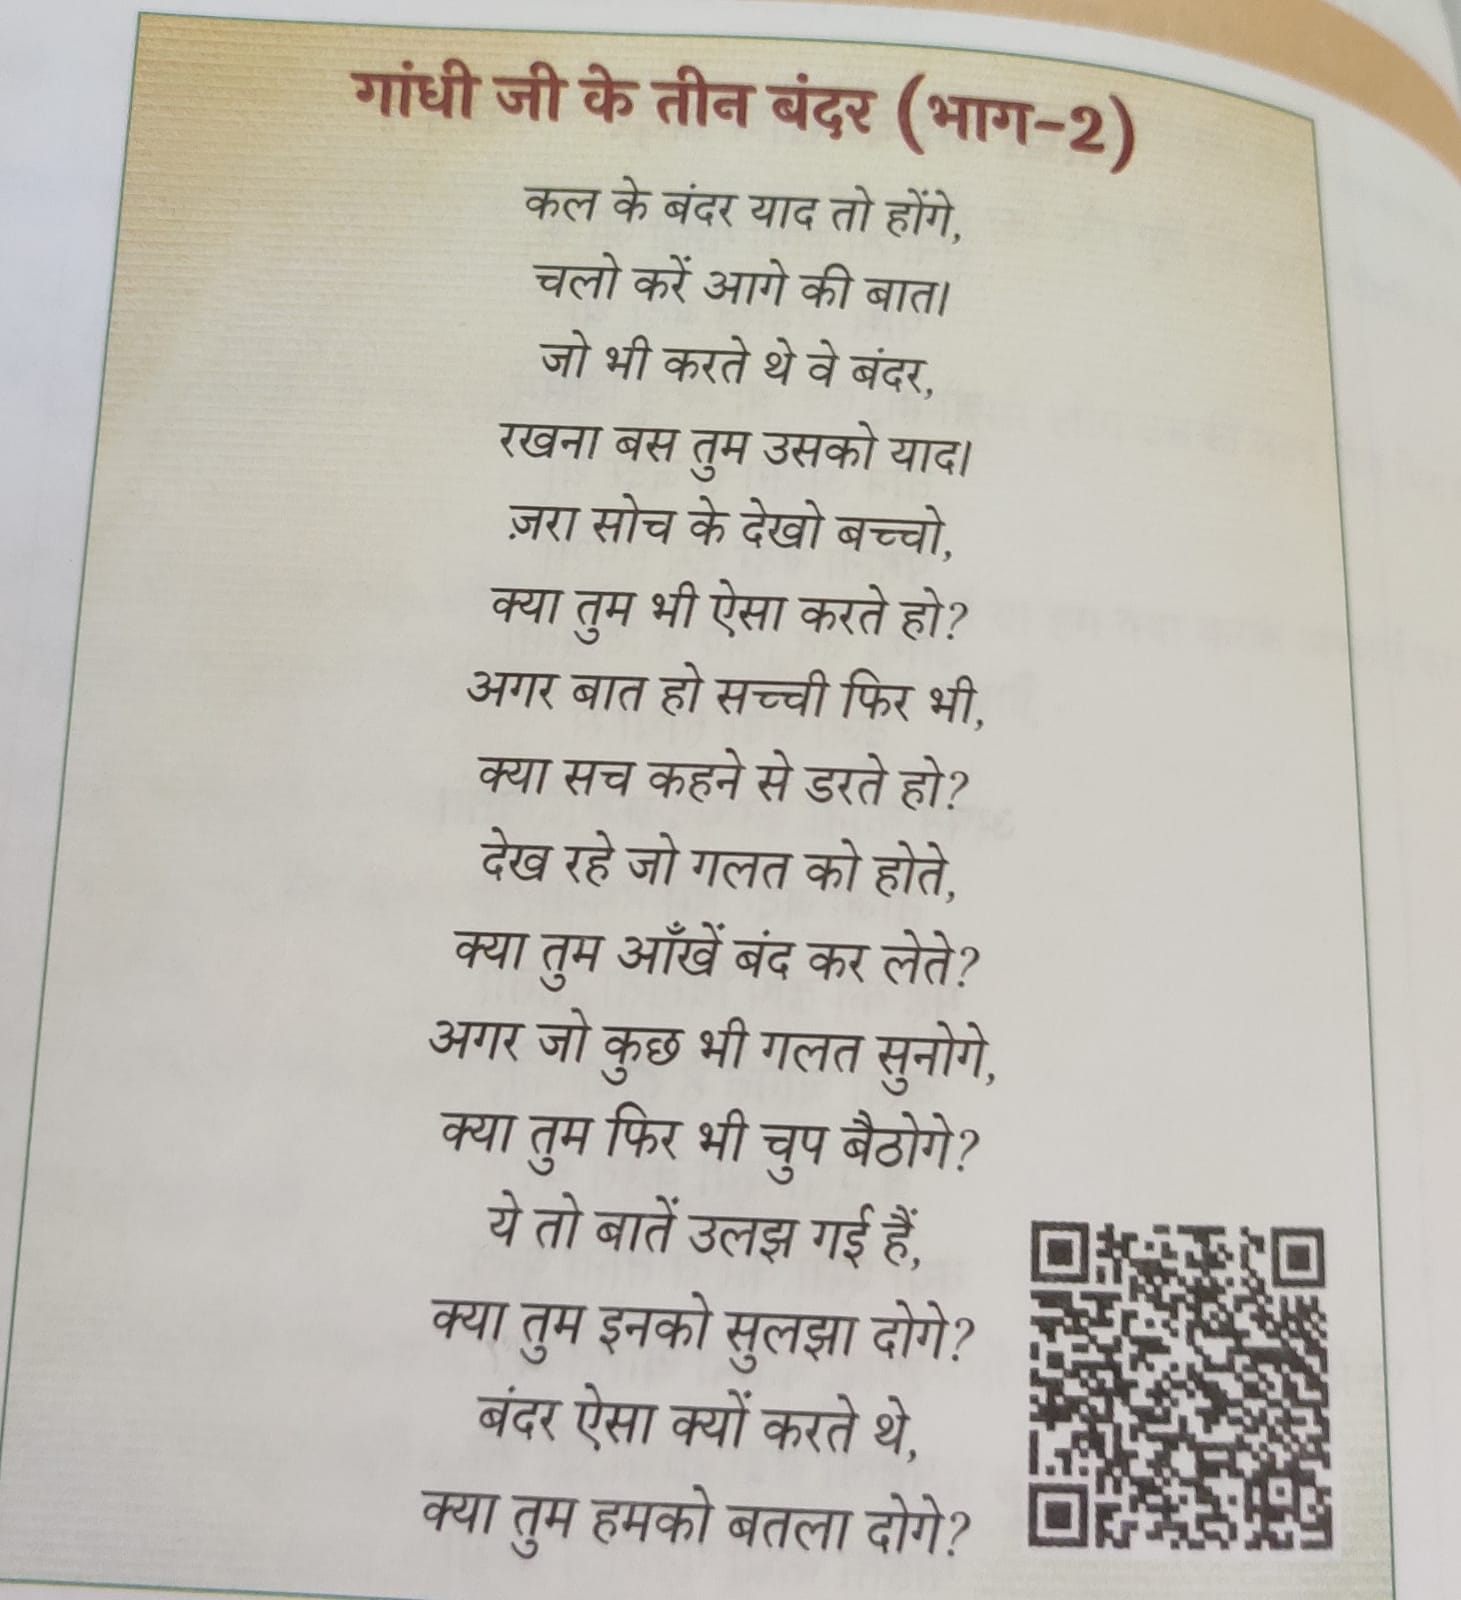 गांधी जी के तीन बंदर (भाग-2)
कल के बंदर याद तो होंगे,
चलो करें आगे की बात।
जो भी करते थे वे बंदर,
रखना बस तुम उसको याद।
ज़रा सोच के देखो बच्चो,
क्या तुम भी ऐसा करते हो?
अगर बात हो सच्ची फिर भी,
क्या सच कहने से डरते हो?
देख रहे जो गलत को होते,
क्या तुम आँखें बंद कर लेते?
अगर जो कुछ भी गलत सुनोगे,
क्या तुम फिर भी चुप बैठोगे?
ये तो बातें उलझ गई हैं,
क्या तुम इनको सुलझा दोगे?
बंदर ऐसा क्यों करते थे,
क्या तुम हमको बतला दोगे?